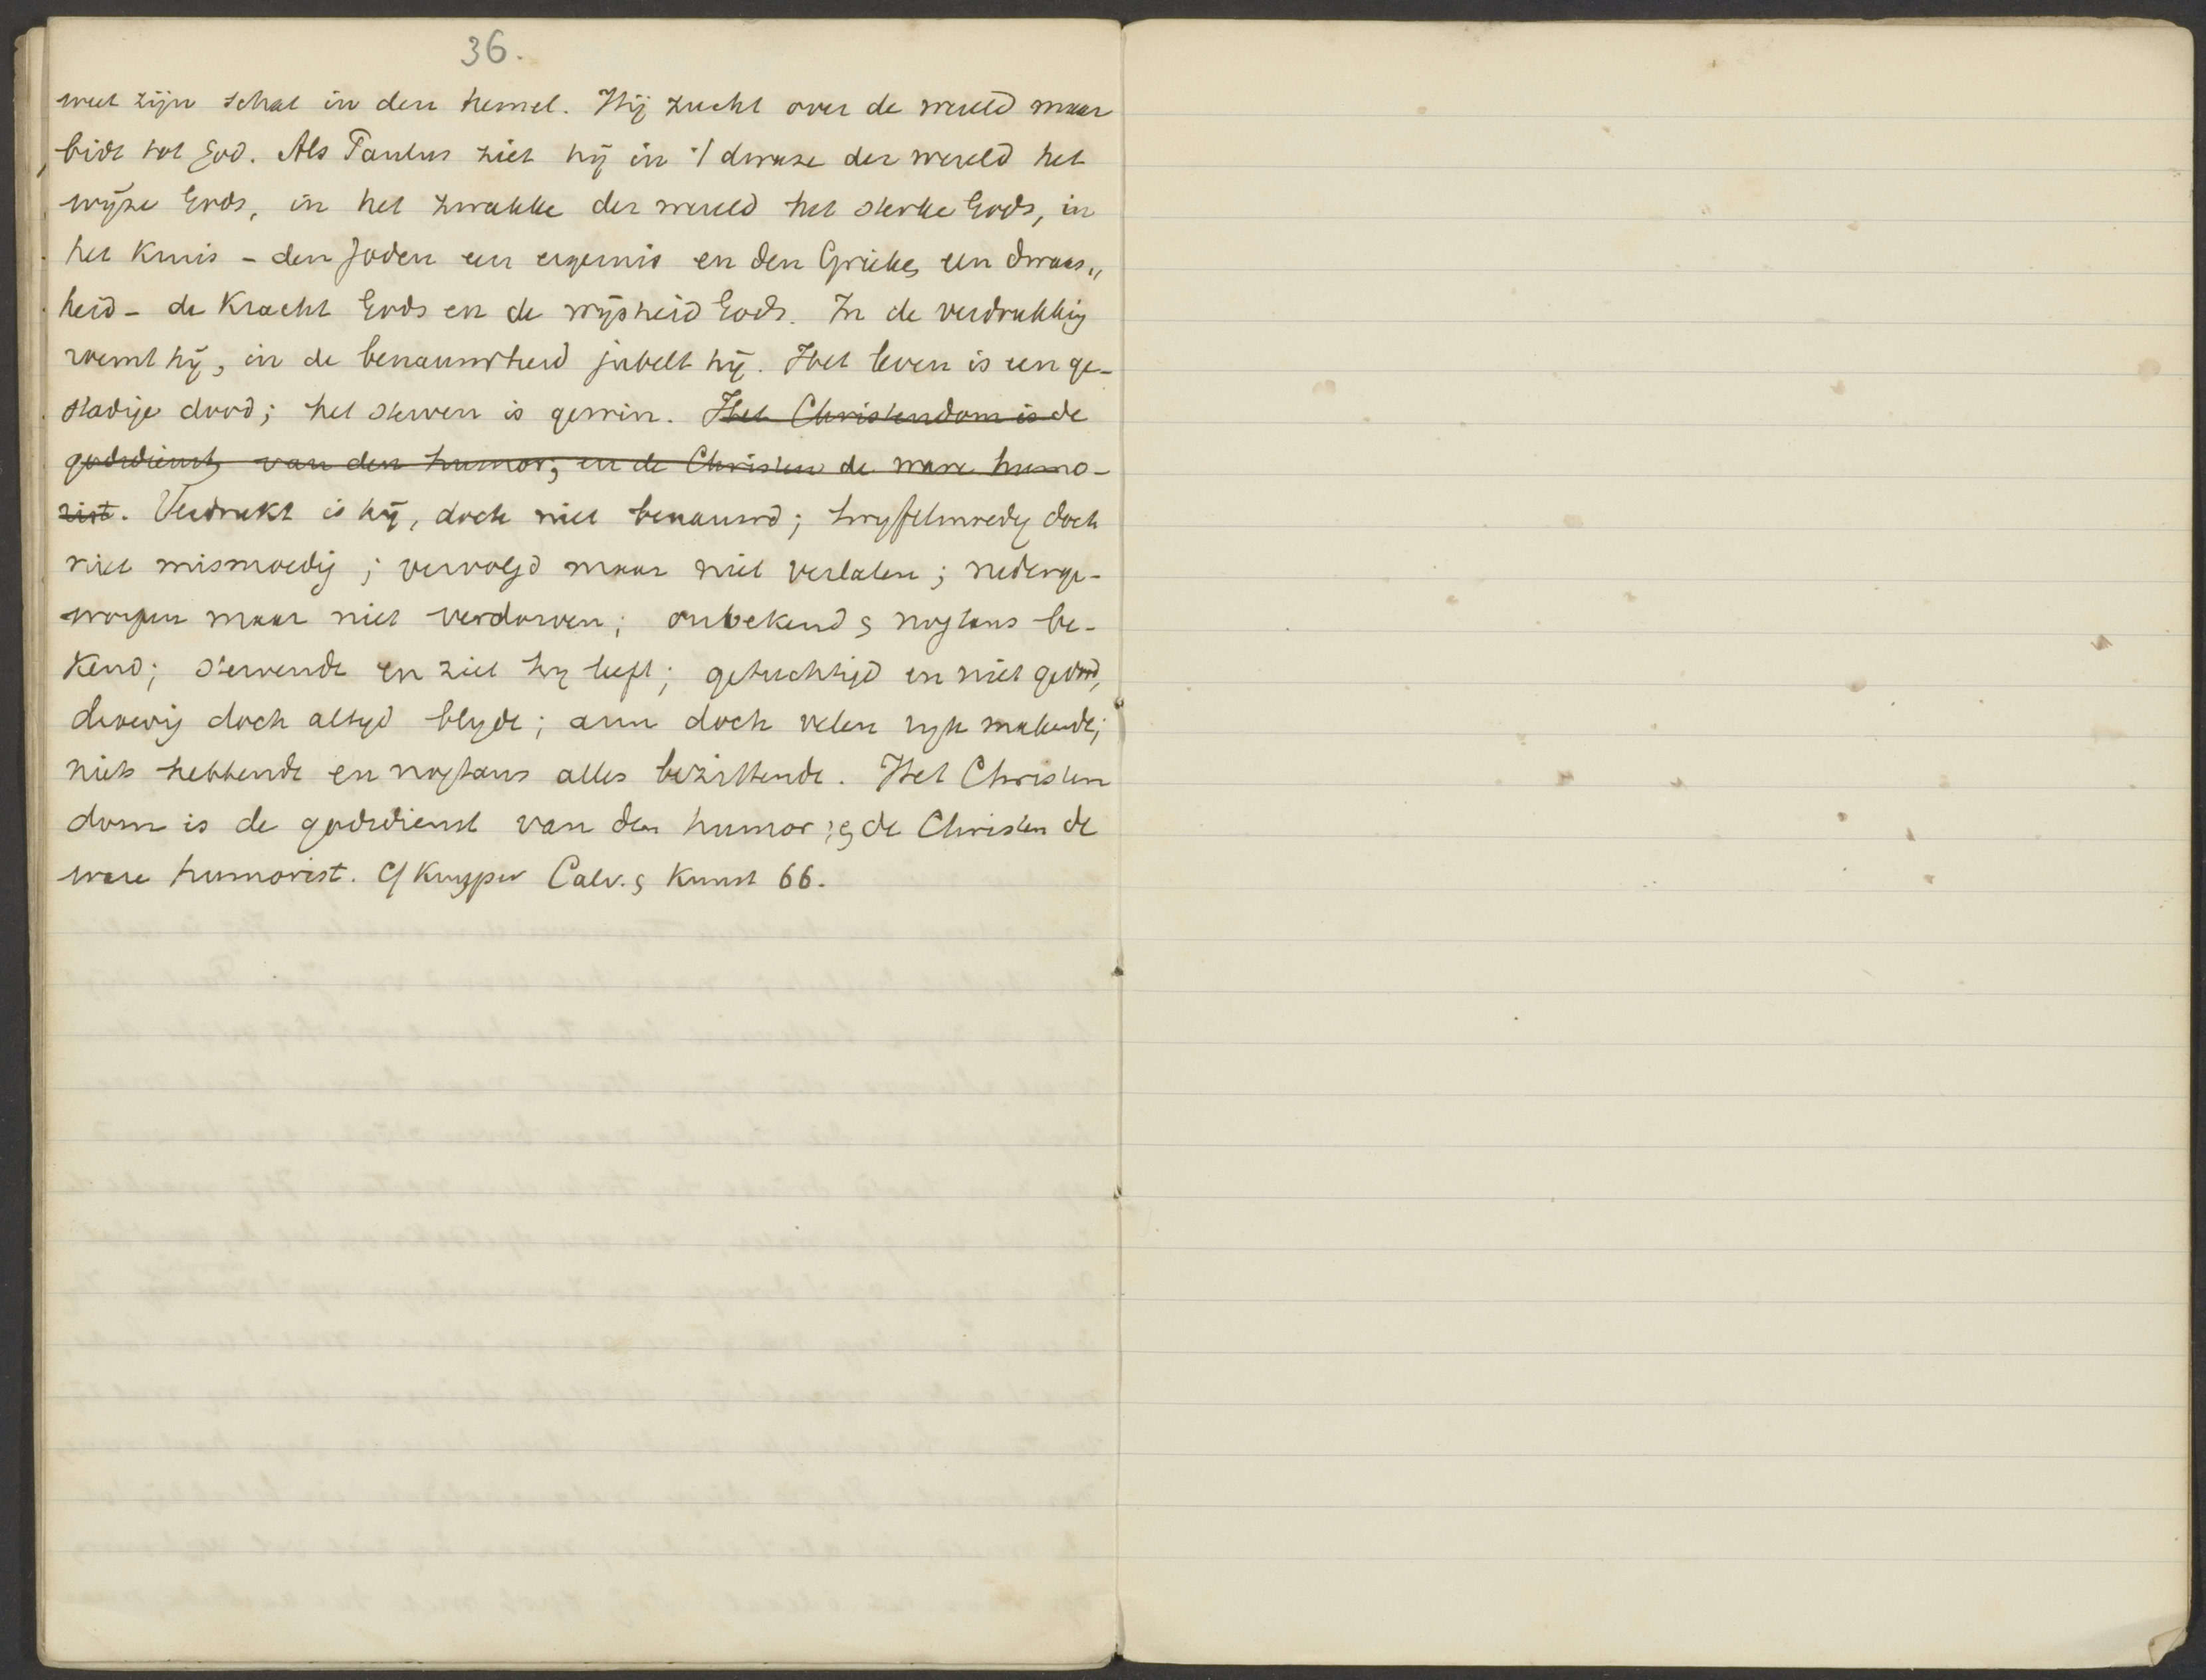 36.
weet zijn schat in den hemel. Hij zucht over de wereld maar
bidt tot God. Als Paulus ziet hij in 't dwaze der wereld het
wijze Gods, in het zwakke der wereld het sterke Gods, in
het Kruis - den Joden een ergernis en den Grieken een dwaas„
heid - de Kracht Gods en de wijsheid Gods. In de verdrukking
roemt hij, in de benauwdheid jubelt hij. Het leven is een ge-
stadige dood; het sterven is gewin. Het Christendom is de
godsdienst van den humor; en de Christen de ware humo-
rist. Verdrukt is hij, doch niet benauwd; twyfelmoedig doch
niet mismoedig; vervolgd maar niet verlaten; nederge-
worpen maar niet verdorven; onbekend en nogtans be-
kend; stervende en ziet hy leeft; getuchtigd en niet gedood,
droevig doch altyd blyde; arm doch velen ryk makende;
niets hebbende en nogtans alles bezittende. Het Christen
dom is de godsdienst van den humor; en de Christen de
ware humorist. Cf Kuyper Calv. en Kunst 66.